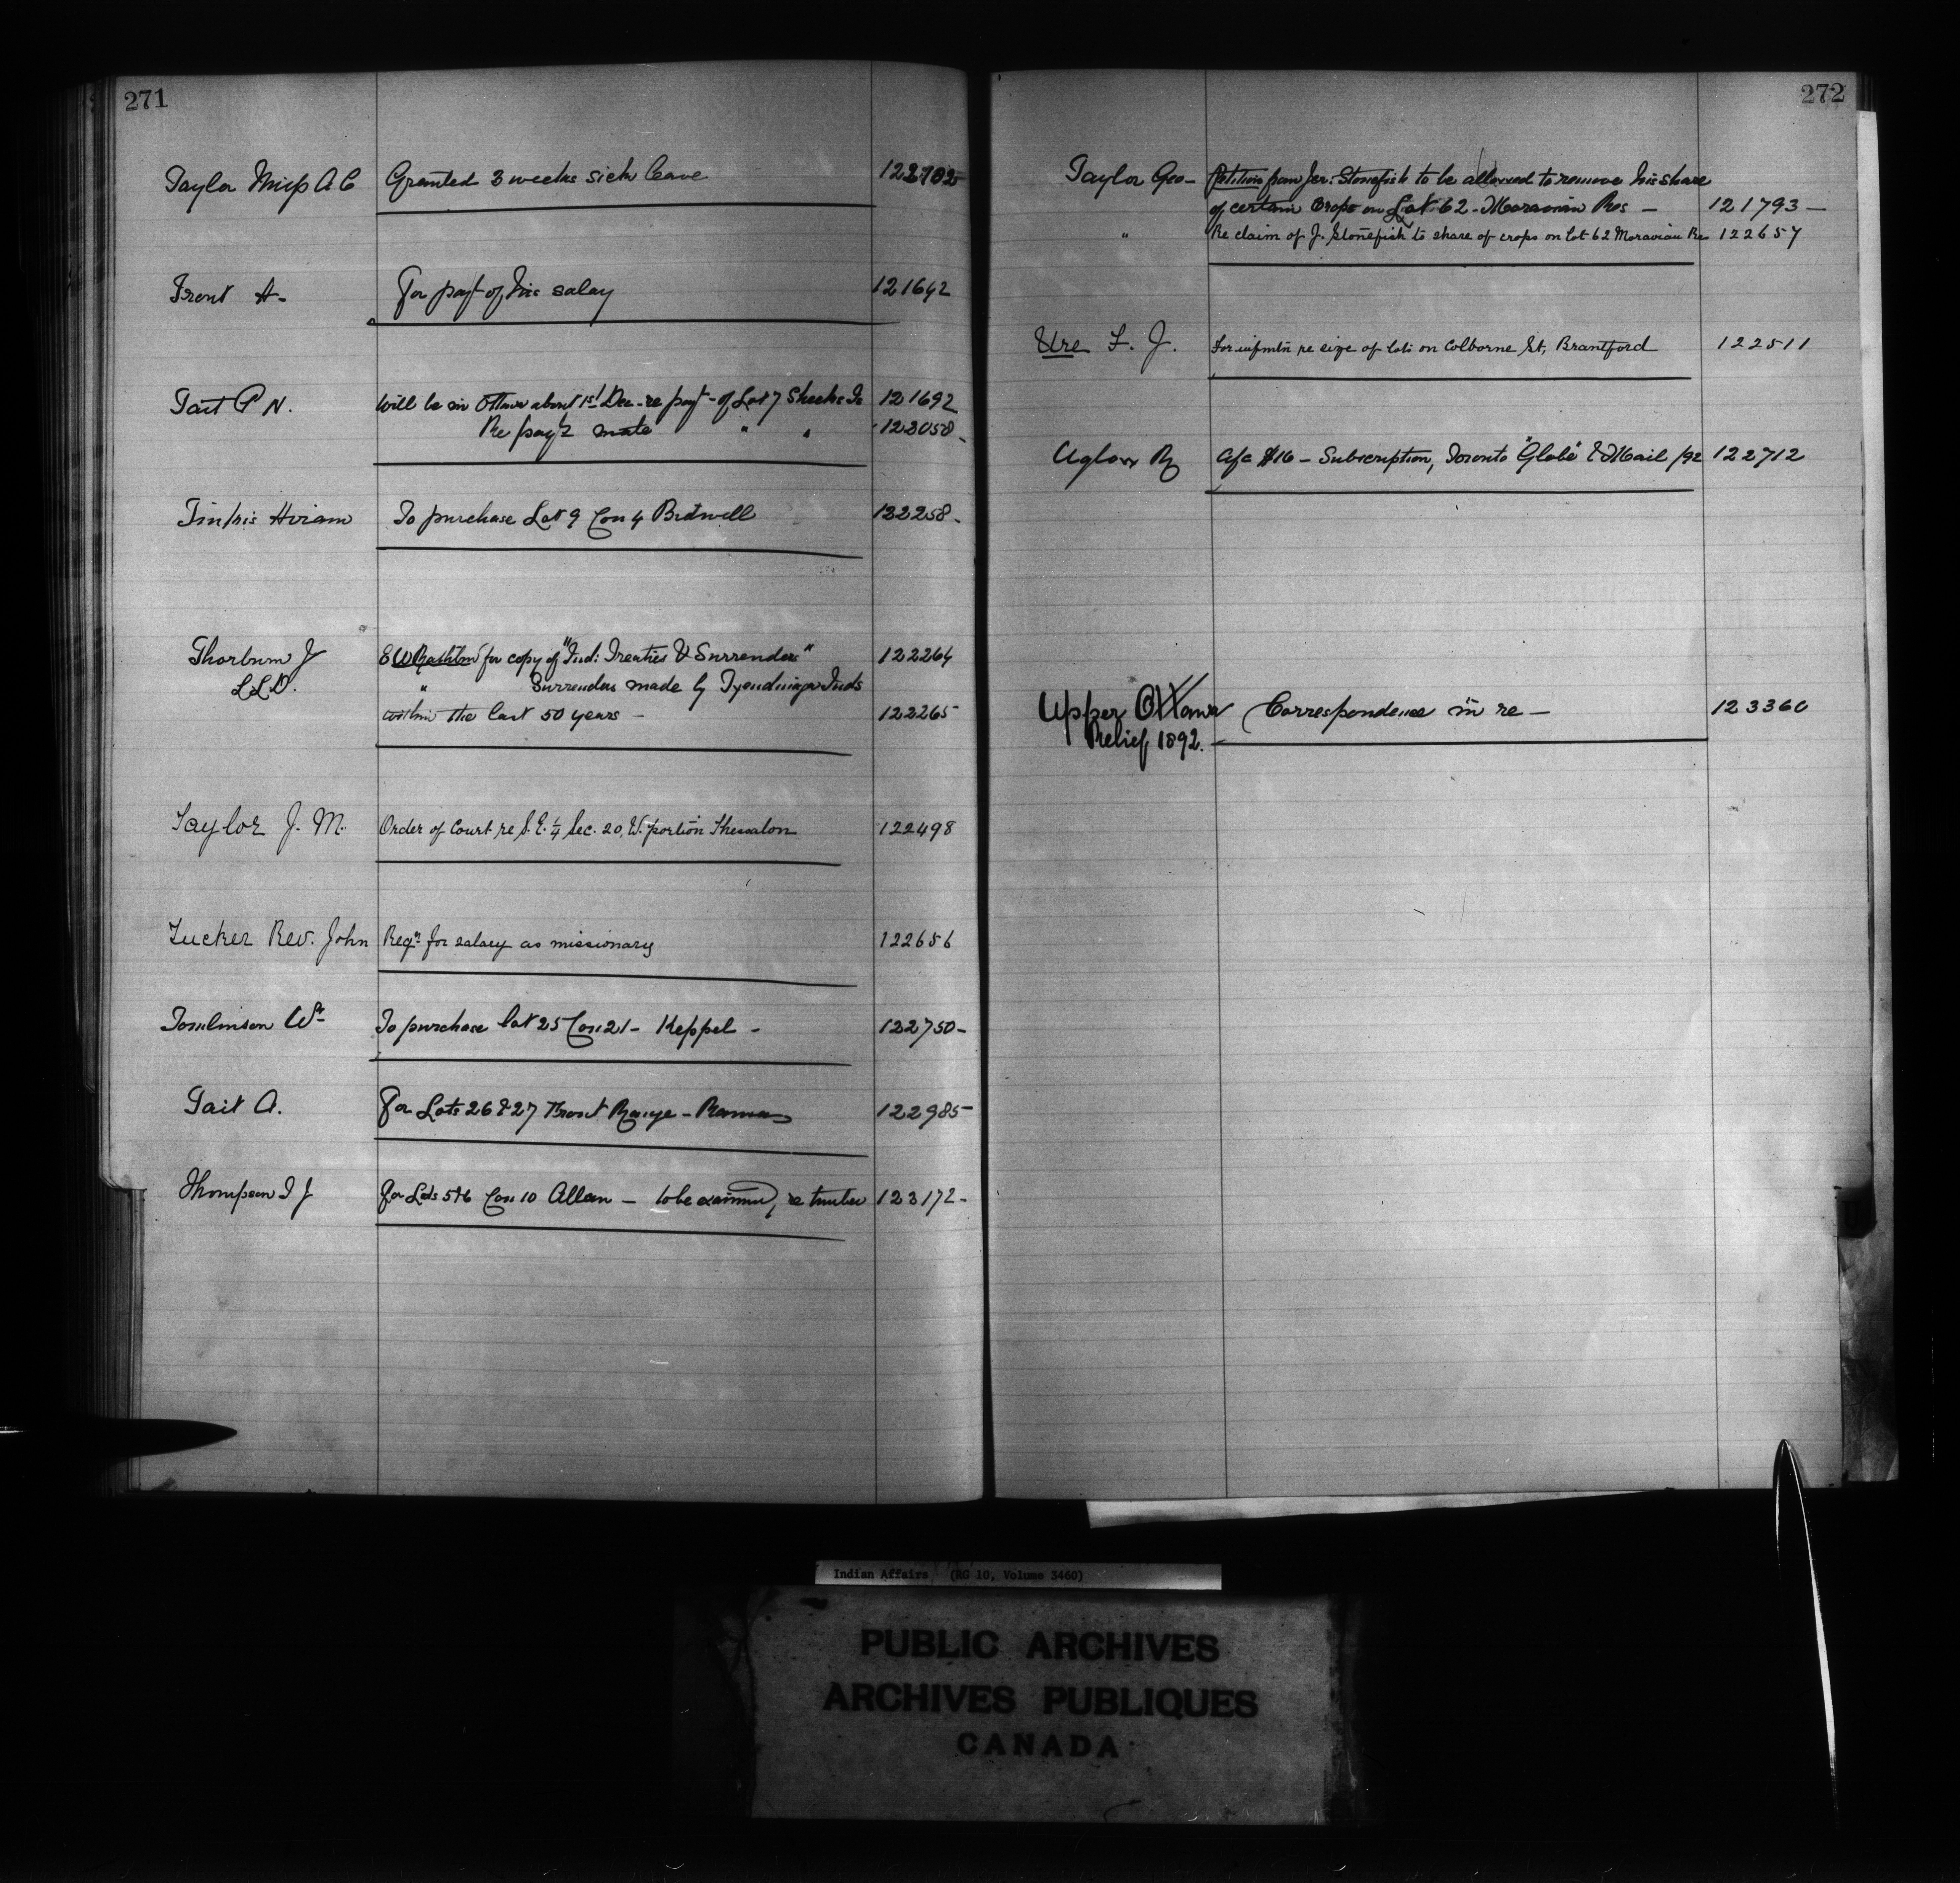 271
Taylor Miss A C Granted 3 weeks sick leave
Trent A- For payt of his salary 121642
Tait P N. Will be in Ottawa about 1st Dec. re payt- of Lot 7 Sheeks Is 121692
Re payt 123058-
Hiram To purchase Lot 9 Con 4 Bidwell 122258-
Thorburn J E W Rathbun for copy of "Ind: Treaties & Surrenders" 122264
LLD. " Surrenders made by Tyendinaga Inds
within the last 50 years - 122265
Taylor J. M. Order of Court re S.E. ¼ Sec. 20, W. portion Thessalon 122498
Tucker Rev. John Reqn for salary as missionary 122656
Tomlinson Wm To purchase lot 25 Con 21 - Keppel - 122750-
Tait A. For Lots 26 & 27 Front Range - Rama 122985-
Thompson I J for Lots 5 & 6 Con 10 Allan - to be examined, re timber 123172-
272
Taylor Geo- Petition from Jer: Stonefish to be allowed to remove his share
of certain Crops on Lot 62 - Moravian Res - 121793-
" Re claim of J. Stonefish to share of crops on lot 62 Moravian Re 122657
Ure F. J. For infmtn re size of lots on Colborne St, Brantford 122511
Uglow R a/c $16 - Subscription, Toronto "Globe" & Mail /92 122712
Upper Ottawa Correspondence in re - 123360
Relief 1892.
Indian Affairs (RG 10, Volume 3460)
PUBLIC ARCHIVES
ARCHIVES PUBLIQUES
CANADA